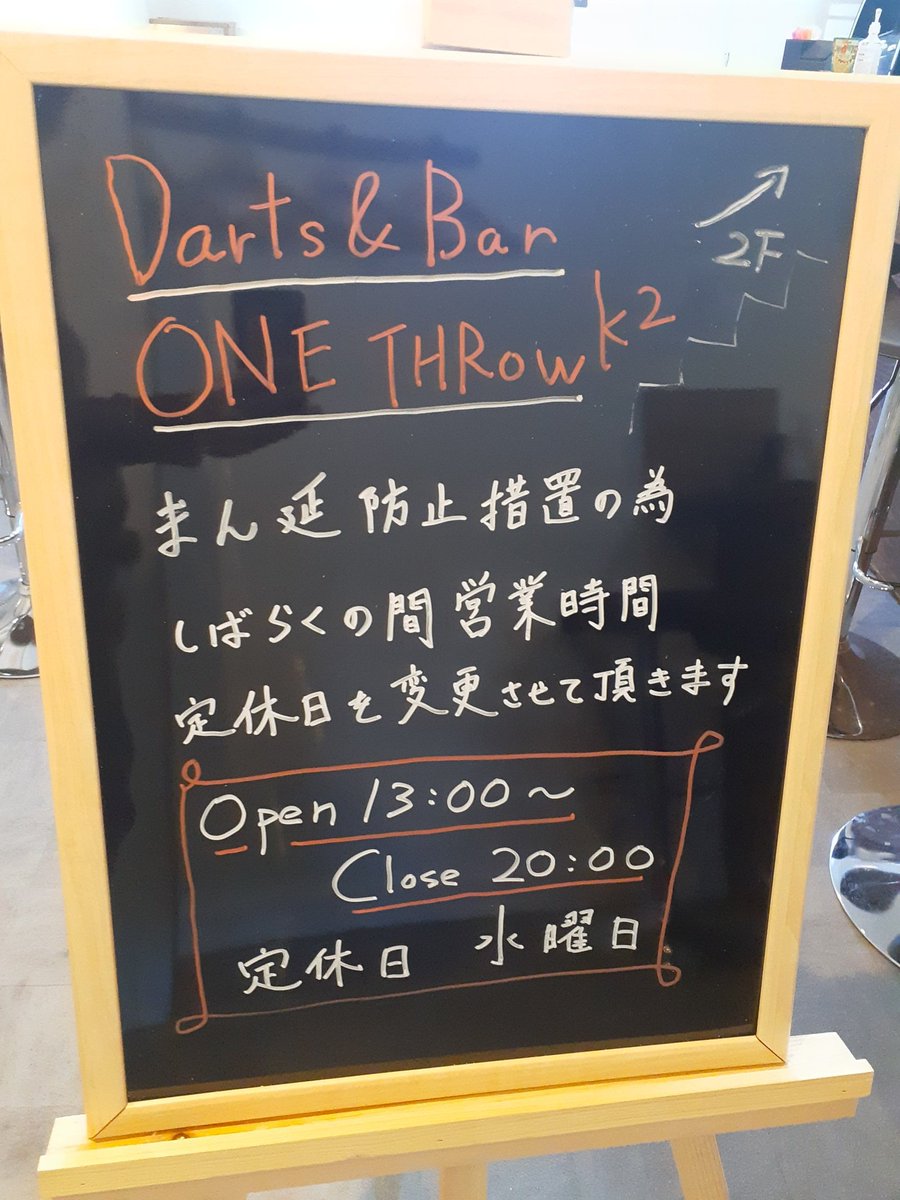 Darts & Bar
2F
ONE THRow K2
まん延防止措置の為
しばらくの間営業時間
定休日を変更させて頂きます
Open 13:00～
Close 20:00
定休日 水曜日